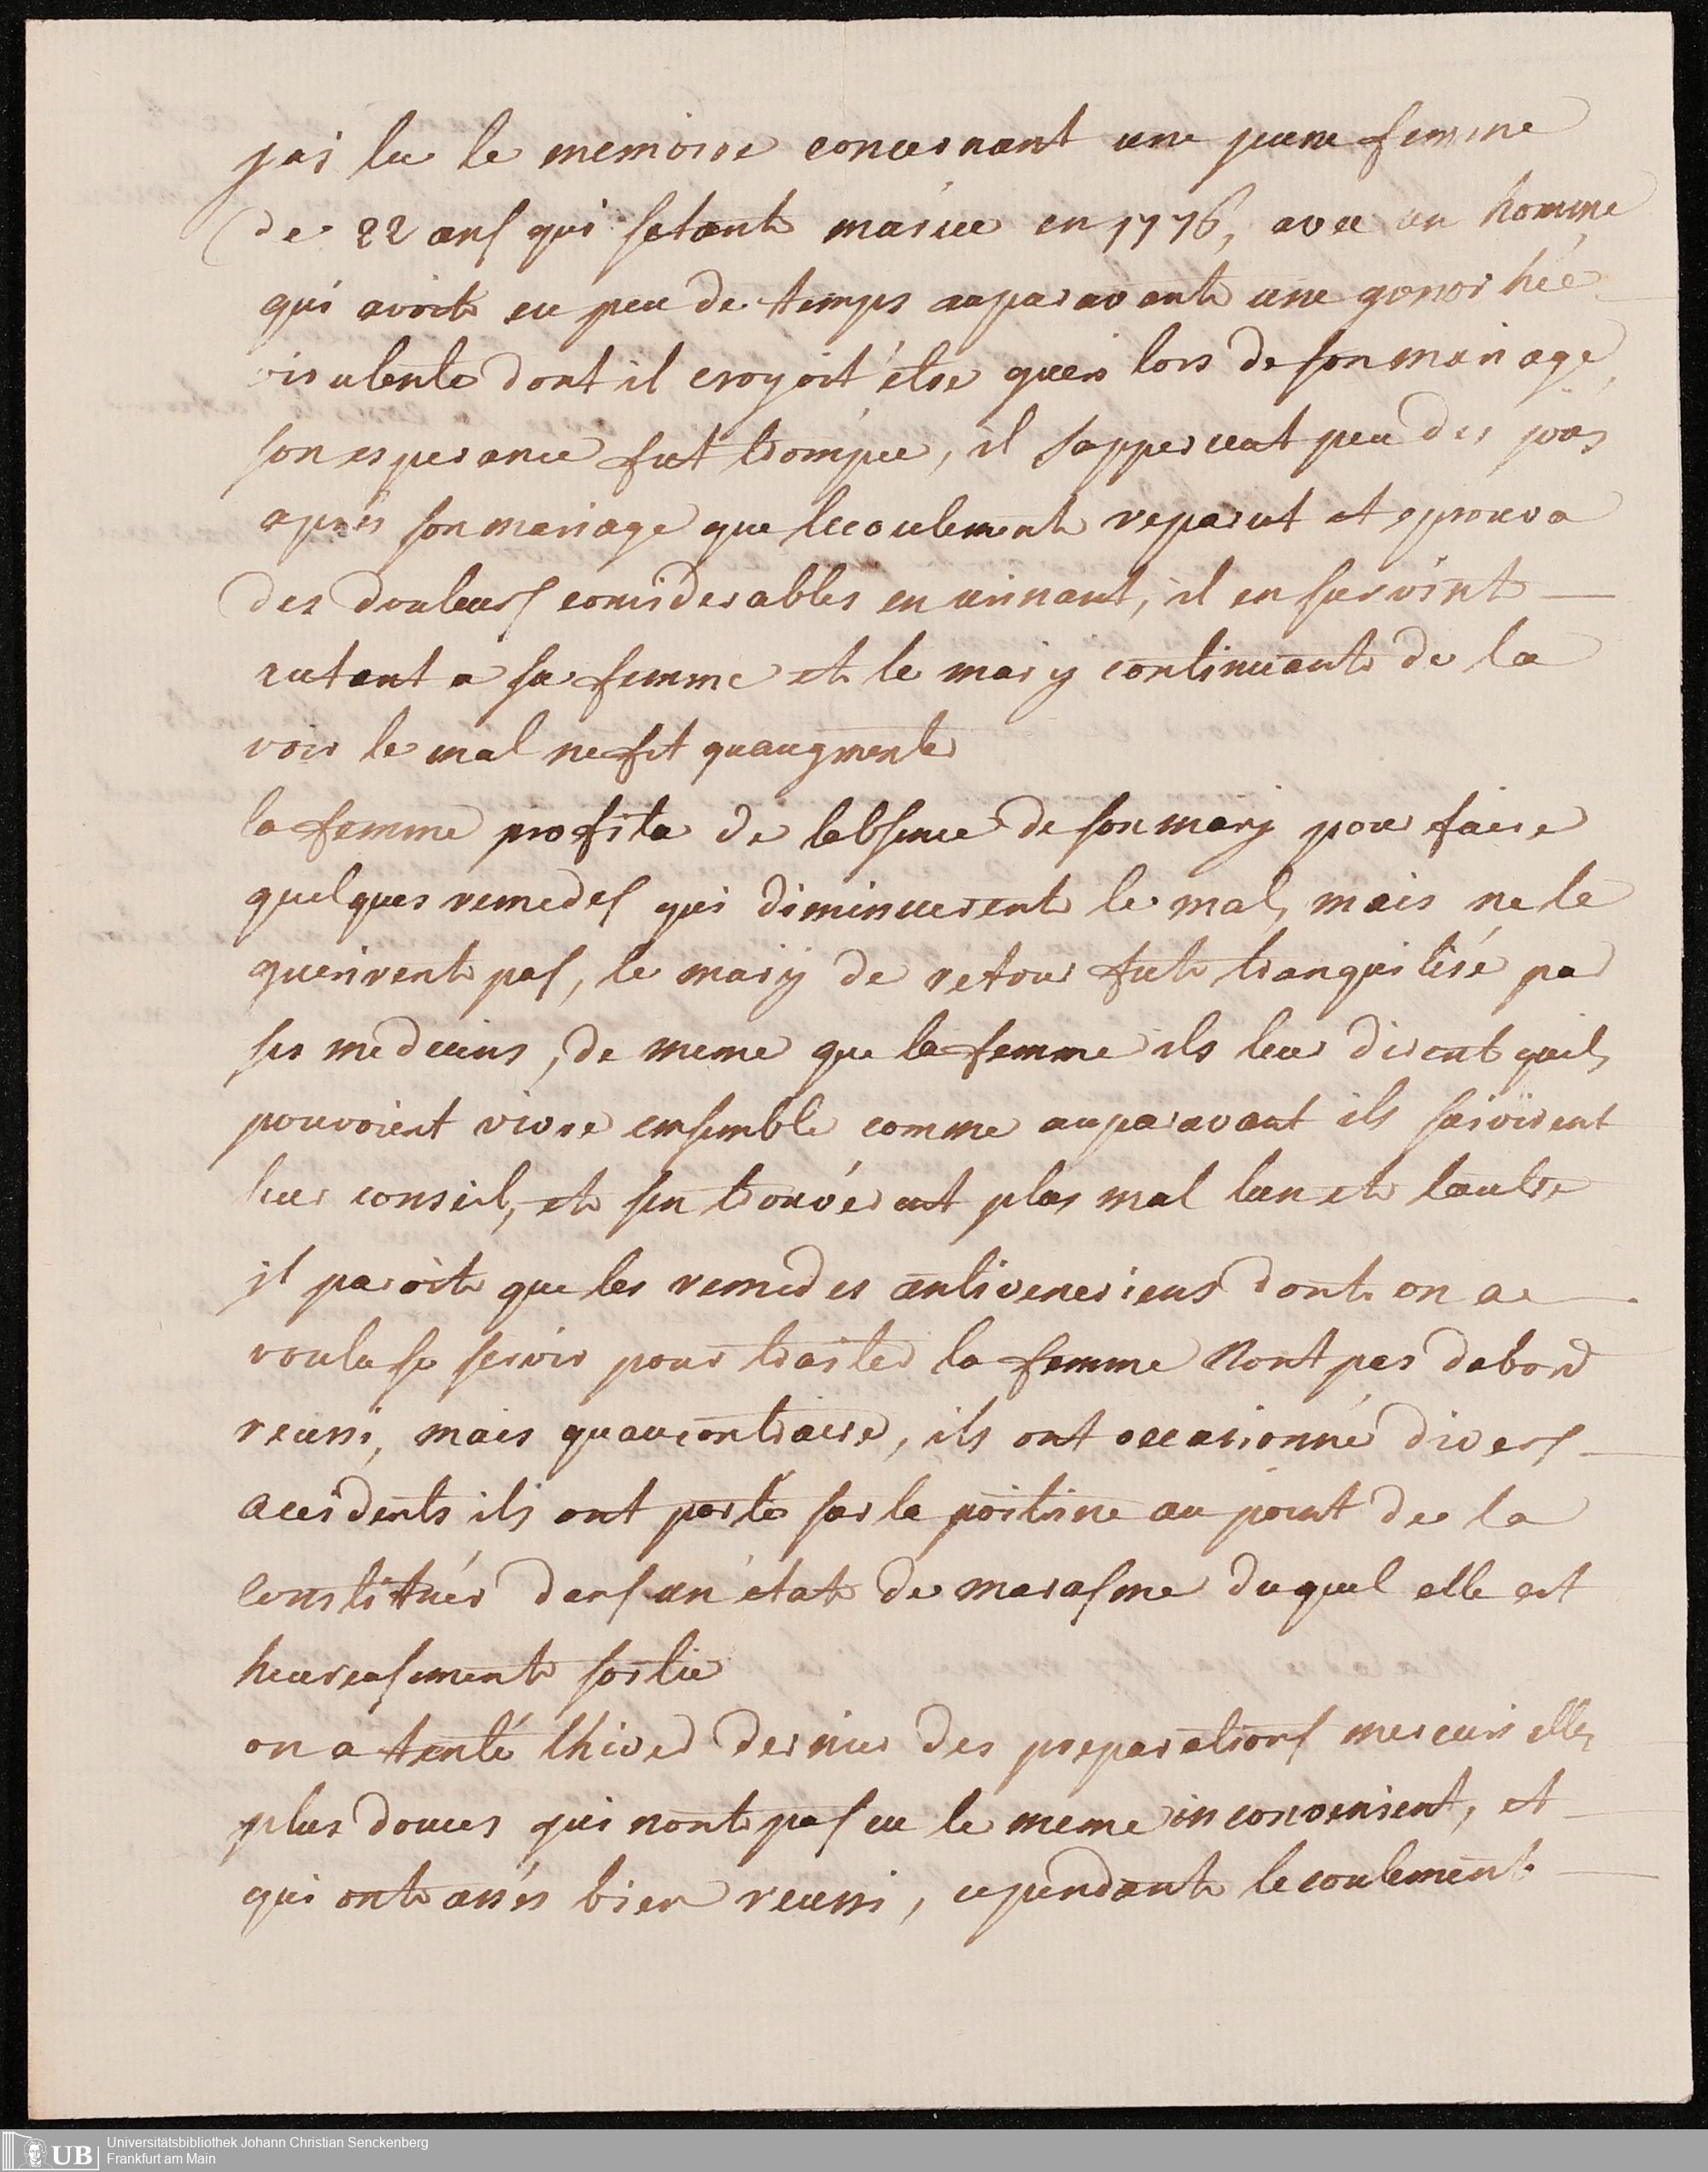 jai lu le memoire concernant une jeune femme
de 22 ans qui setant mariee en 1776, avec un homme
qui avoit eu peu de temps auparavant une gonorhée
virulente dont il croyoit étre gueri lors de son mariage,
son esperance fut trompée, il sappercut peu des jours
aprés son mariage que lecoulement reparut et eprouva
des douleurs considerables en urinant, il en survint
autant a sa femme et le mary continuant de la
voir le mal ne fit quaugmenter
la femme profita de labsence de son mary pour faire
quelques remedes qui diminuerent le mal, mais ne le
guerirent pas, le mary de retour fut tranquilisé par
ses medecins, de meme que la femme ils leur dirent quils
pouvoient vivre ensemble comme auparavant ils suivirent
leur conseil, et sen trouvérent plus mal lun et lautre
il paroit que les remedes antiveneriens dont on a
voulu se servir pour traiter la femme nont pas dabord
reussi, mais quaucontraire, ils ont occasionné divers
accidents ils ont porté sur la poitrine au point de la
constituer dans un état de marasme duquel elle est
heureusement sortie
on a tenté lhiver dernier des preparations mercurielles
plus douces qui nont pas eu le meme inconvenient, et
qui ont assés bien reussi, cependant lecoulement
UB
Universitätsbibliothek Johann Christian Senckenberg
Frankfurt am Main